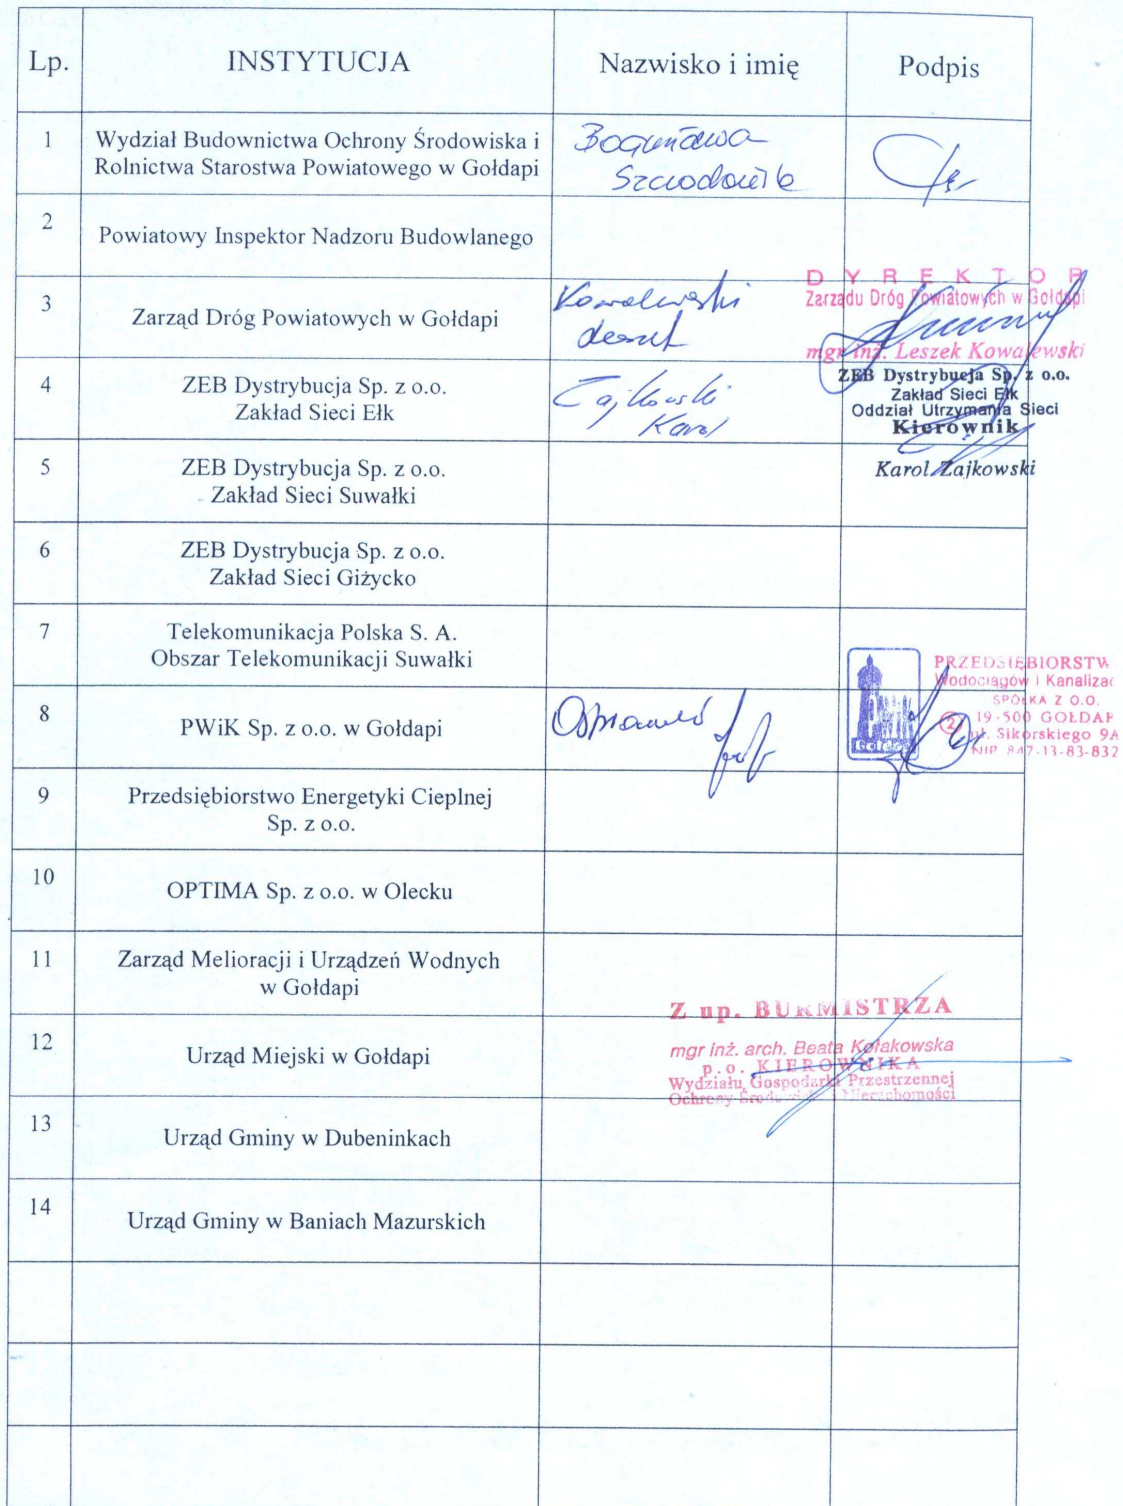 Lp. INSTYTUCJA Nazwisko i imię Podpis
1 Wydział Budownictwa Ochrony Środowiska i
Rolnictwa Starostwa Powiatowego w Gołdapi
2 Powiatowy Inspektor Nadzoru Budowlanego
3 Zarząd Dróg Powiatowych w Gołdapi
Kowalewski
DYREKTOR
Zarządu Dróg Powiatowych w Gołdapi
mgr inż. Leszek Kowalewski
4 ZEB Dystrybucja Sp. z o.o.
Zakład Sieci Ełk
Zajkowski
Karol
ZEB Dystrybucja Sp. z o.o.
Zakład Sieci Ełk
Oddział Utrzymania Sieci
Kierownik
Karol Zajkowski
5 ZEB Dystrybucja Sp. z o.o.
Zakład Sieci Suwałki
6 ZEB Dystrybucja Sp. z o.o.
Zakład Sieci Giżycko
7 Telekomunikacja Polska S. A.
Obszar Telekomunikacji Suwałki
8 PWiK Sp. z o.o. w Gołdapi
PRZEDSIĘBIORSTW
Wodociągów i Kanalizac
SPÓŁKA Z O.O.
2 19-500 GOŁDAP
ul. Sikorskiego 9A
NIP 847-13-83-832
Gołdap
9 Przedsiębiorstwo Energetyki Cieplnej
Sp. z o.o.
10 OPTIMA Sp. z o.o. w Olecku
11 Zarząd Melioracji i Urządzeń Wodnych
w Gołdapi
12 Urząd Miejski w Gołdapi
Z up. BURMISTRZA
mgr inż. arch. Beata Kołakowska
p.o. KIEROWNIKA
Wydziału Gospodarki Przestrzennej
Ochrony Środowiska i Nieruchomości
13 Urząd Gminy w Dubeninkach
14 Urząd Gminy w Baniach Mazurskich